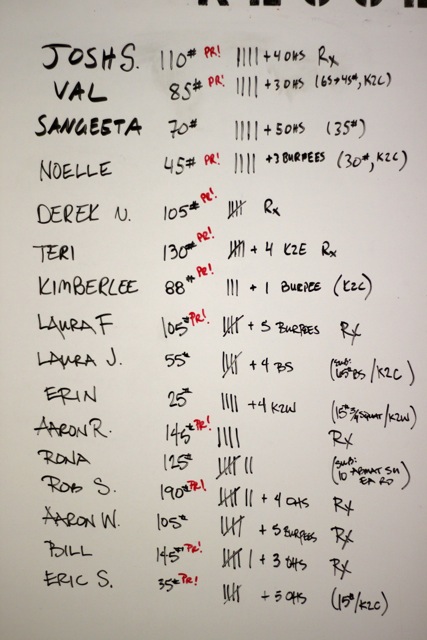 JOSH S. 110# PR! |||| + 4 OHS Rx
VAL 85# PR! |||| + 3 OHS (65→45#, K2C)
SANGEETA 70# |||| + 5 OHS (35#)
NOELLE 45# PR! |||| + 3 BURPEES (30#, K2C)
DEREK N. 105# PR! 卌 Rx
TERI 130# PR! 卌 + 4 K2E Rx
KIMBERLEE 88# PR! ||| + 1 BURPEE (K2C)
LAURA F 105# PR! 卌 + 5 BURPEES Rx
LAURA J. 55# 卌 + 4 BS (SUB: 65# BS / K2C)
ERIN 25# |||| + 4 K2W (15# 3/4 SQUAT / K2W)
AARON R. 145# PR! |||| Rx
RONA 125# 卌 || (SUB: 10 ABMAT SU EA RD)
ROB S. 190# PR! 卌 || + 4 OHS Rx
AARON W. 105# 卌 + 5 BURPEES Rx
BILL 145# PR! 卌 | + 3 OHS Rx
ERIC S. 35# PR! 卌 + 5 OHS (15# / K2C)